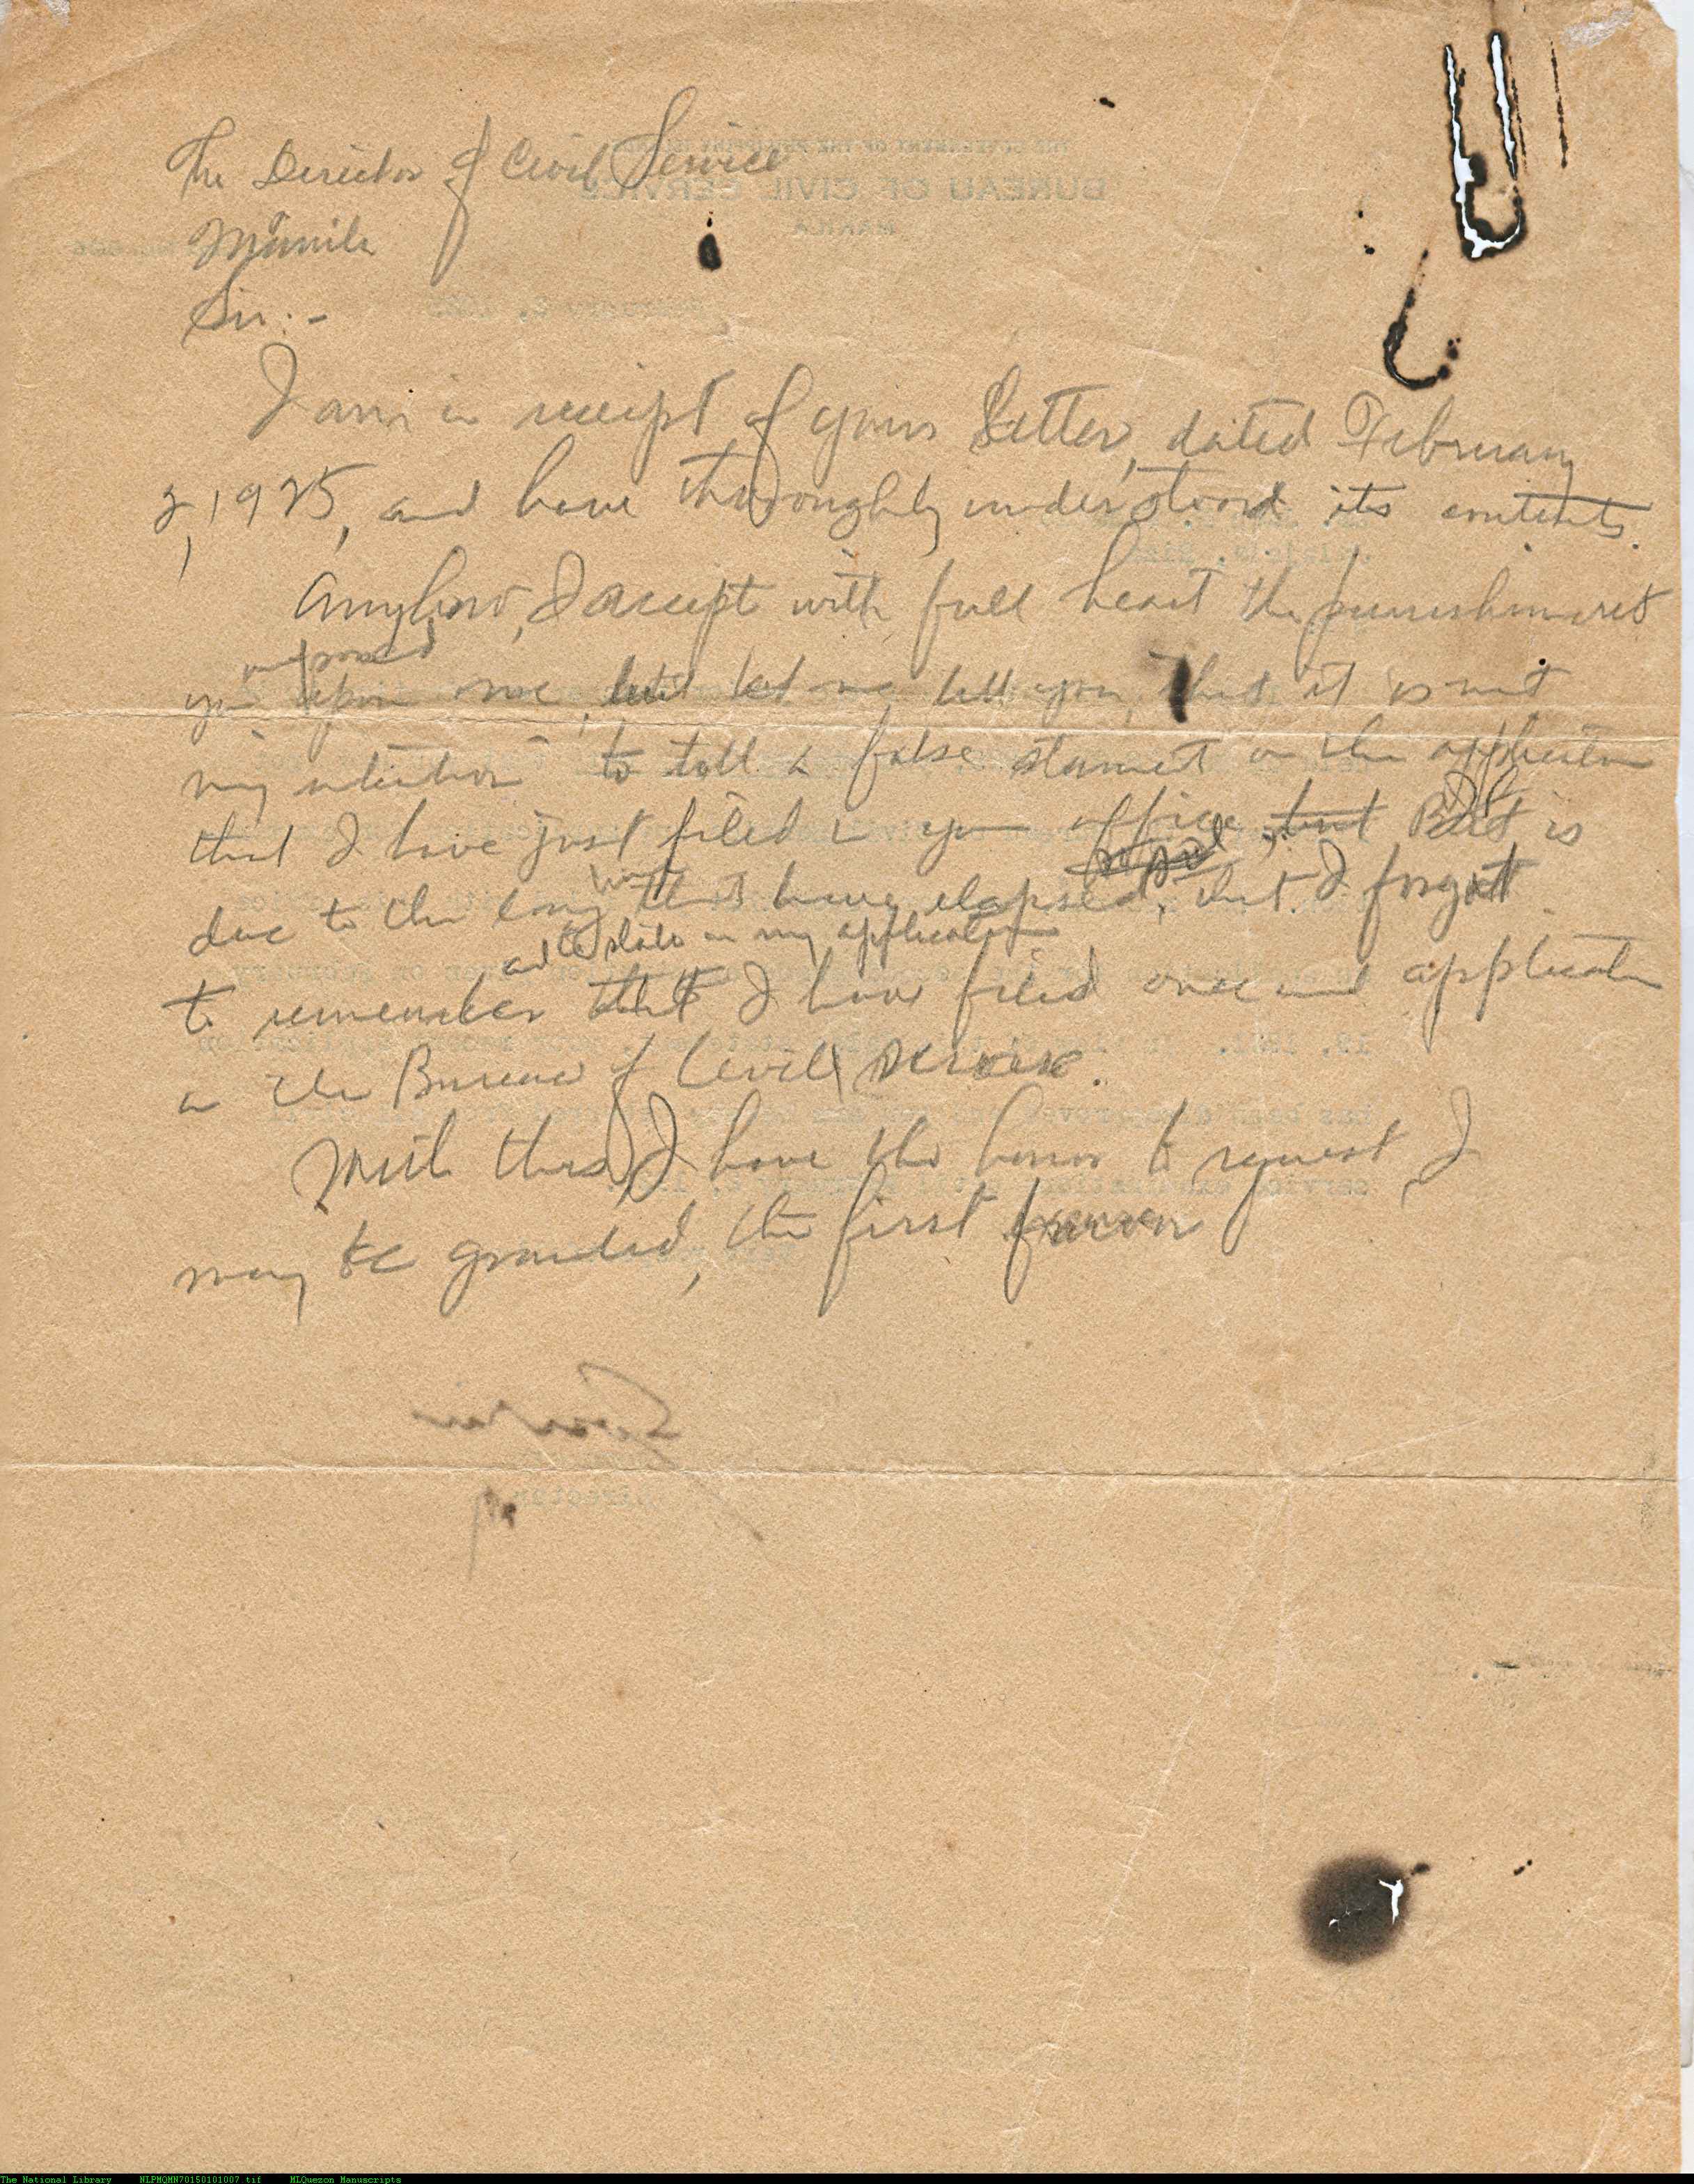 The Director of Civil Service
Manila
Sir:-
I am in receipt of your letter, dated February
2, 1925, and have thoroughly understood its contents.
Anyhow, I accept with full heart the punishment
imposed
you upon me, but let me tell you, that it is not
my intention to tell a false stament in the application
that I have just filed in your office, but But it is
due to the long time that have elapsed, that I forgot
and to state in my application
to remember that I have filed once and application
in the Bureau of Civil Service.
With this, I have the honor to request, I
may be granted, the first favor
THE GOVERNMENT OF THE PHILIPPINE ISLANDS
BUREAU OF CIVIL SERVICE
MANILA
Director
The National Library NLPMQMN70150101007.tif MLQuezon Manuscripts